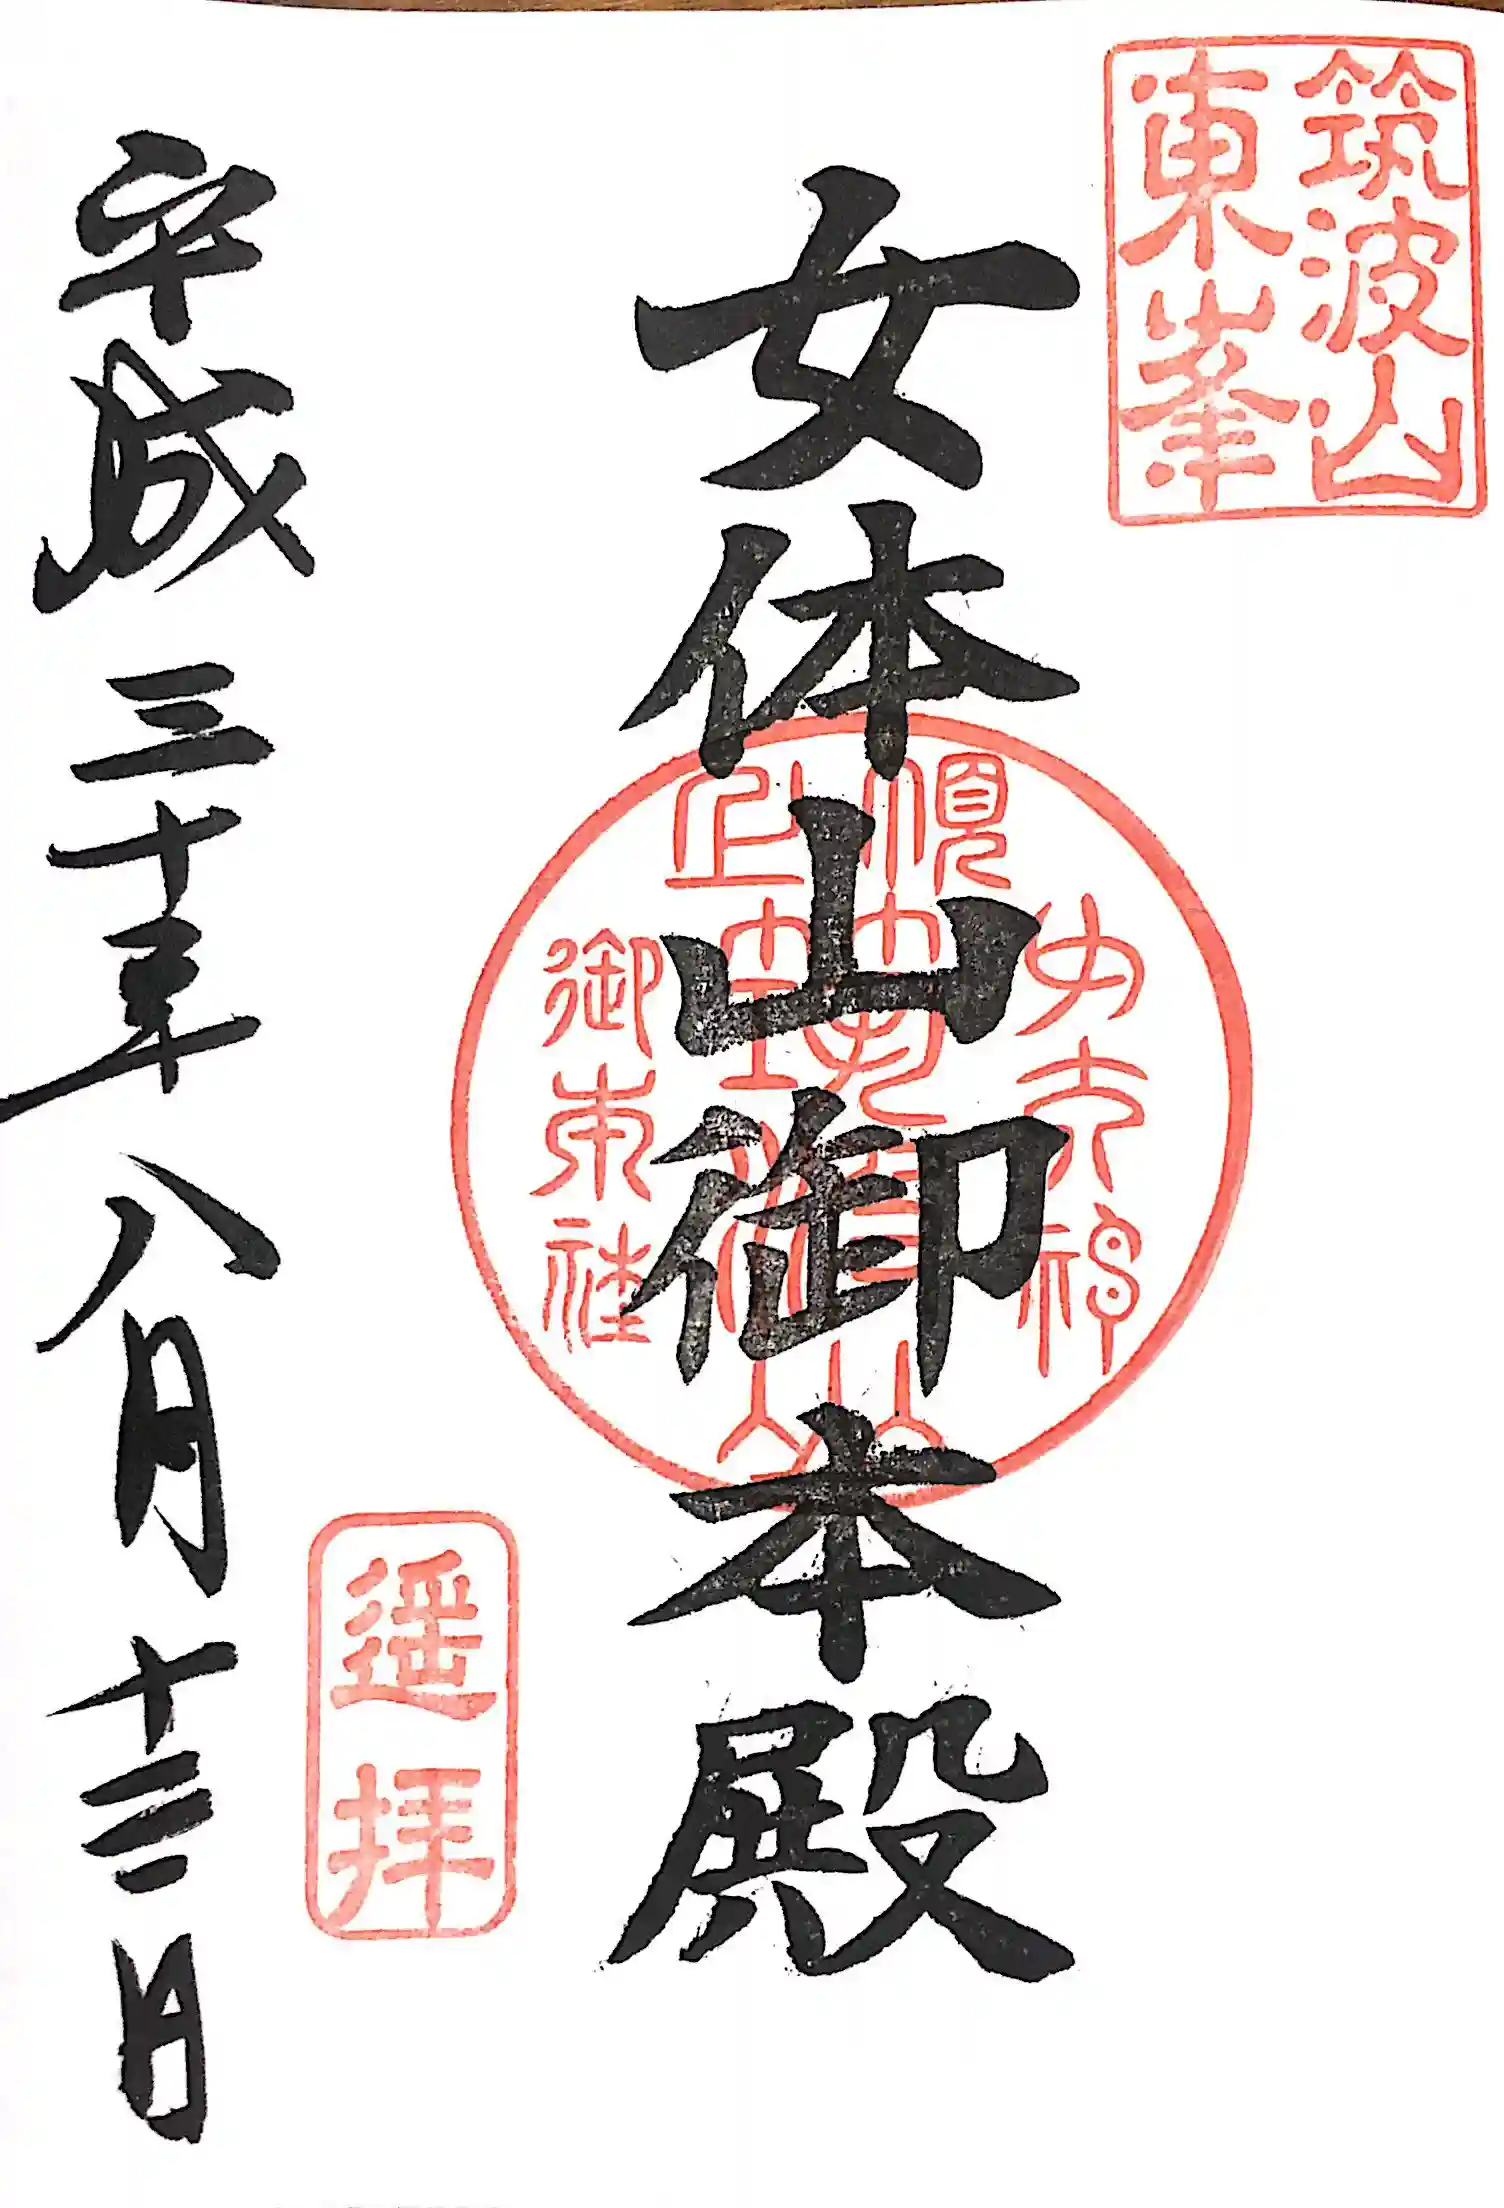 筑波山
東峯
女体山御本殿
女大神
遥拝
平成三十年八月十三日